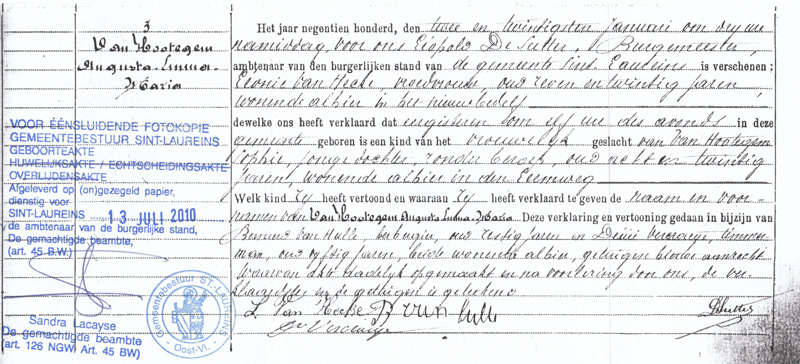 3
Van Hootegem
Augusta-Emma-
Maria
VOOR ÉÉNSLUIDENDE FOTOKOPIE
GEMEENTEBESTUUR SINT-LAUREINS
GEBOORTEAKTE
HUWELIJKSAKTE / ECHTSCHEIDINGSAKTE
OVERLIJDENSAKTE
Afgeleverd op (on)gezegeld papier,
dienstig voor
SINT-LAUREINS 13 JULI 2010
de ambtenaar van de burgerlijke stand,
De gemachtigde beambte,
(art. 45 B.W.)
Sandra Lacayse
De gemachtigde beambte
(art. 126 NGW/ Art. 45 BW)
Gemeentebestuur ST-LAUREINS
Oost-Vl.
Het jaar negentien honderd, den twee en twintigsten Januari om drij ure
namiddag, voor ons Leopold De Sutter, Burgemeester,
ambtenaar van den burgerlijken stand van de gemeente Sint Laureins is verschenen:
Leonie Van Hecke, vroedvrouw, oud zeven en twintig jaren,
wonende alhier in het
dewelke ons heeft verklaard dat eergisteren om elf ure des avonds in deze
gemeente geboren is een kind van het vrouwelijk geslacht van Van Hootegem
Sophie, jonge dochter, zonder beroep, oud acht en twintig
jaren, wonende alhier in den Eemweg
Welk kind zy heeft vertoond en waaraan zy heeft verklaard te geven de naam en voor-
namen van Van Hootegem Augusta-Emma-Maria Deze verklaring en vertooning gedaan in bijzijn van
Bernard Van Hulle, oud zestig jaren en Desiré timmer-
man, oud vyftig jaren, beide wonende alhier, getuigen hiertoe aanzocht
Waarvan akte dadelijk opgemaakt en na voorlezing door ons, de ver-
klaagster en de getuigen is geteekend
L. Van Hecke B Van Hulle
De Sutter